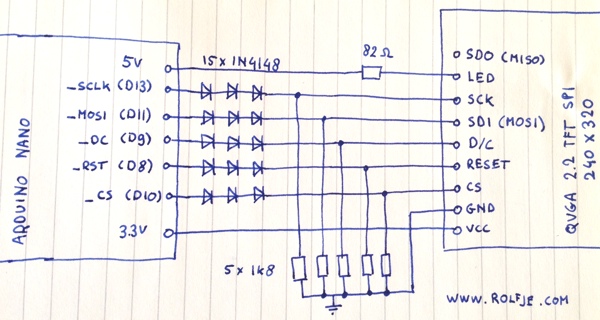 5V
15x1N4148
82Ω
SDO (MISO)
LED
_SCLK (D13)
SCK
_MOSI (D11)
SDI (MOSI)
_DC (D9)
D/C
_RST (D8)
RESET
_CS (D10)
CS
GND
3.3V
VCC
ARDUINO NANO
QVGA 2.2 TFT SPI
240 X 320
5 x 1k8
WWW.ROLFJE.COM